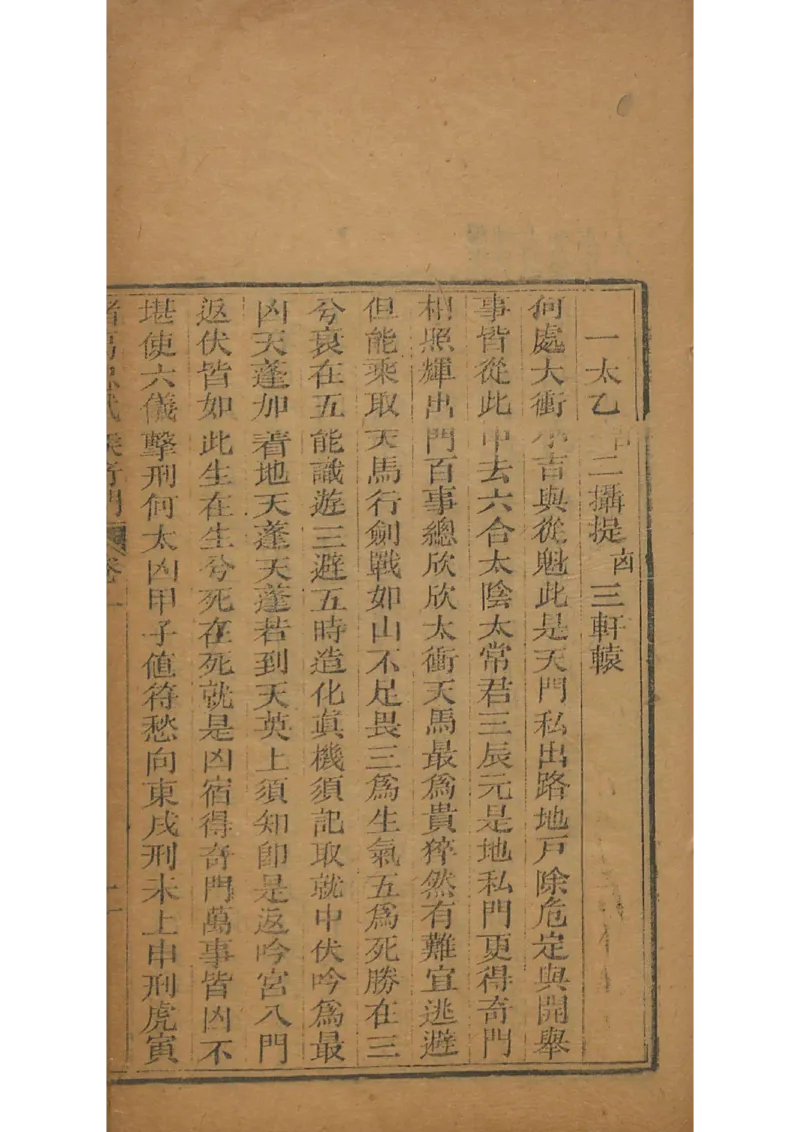 一太乙吉二攝提凶三軒轅
何處大衝小吉與從魁此是天門私出路地戸除危定與開舉
事皆從此中去六合太陰太常君三辰元是地私門更得奇門
相照輝出門百事總欣欣太衝天馬最爲貴猝然有難宜逃避
但能乘取天馬行劍戟如山不足畏三爲生氣五爲死勝在三
兮衰在五能識遊三避五時造化眞機須記取就中伏吟爲最
凶天蓬加着地天蓬天蓬若到天英上須知即是返吟宮八門
返伏皆如此生在生兮死在死就是凶宿得奇門萬事皆凶不
堪使六儀擊刑何太凶甲子值符愁向東戌刑未上申刑虎寅
奇門 卷一 二